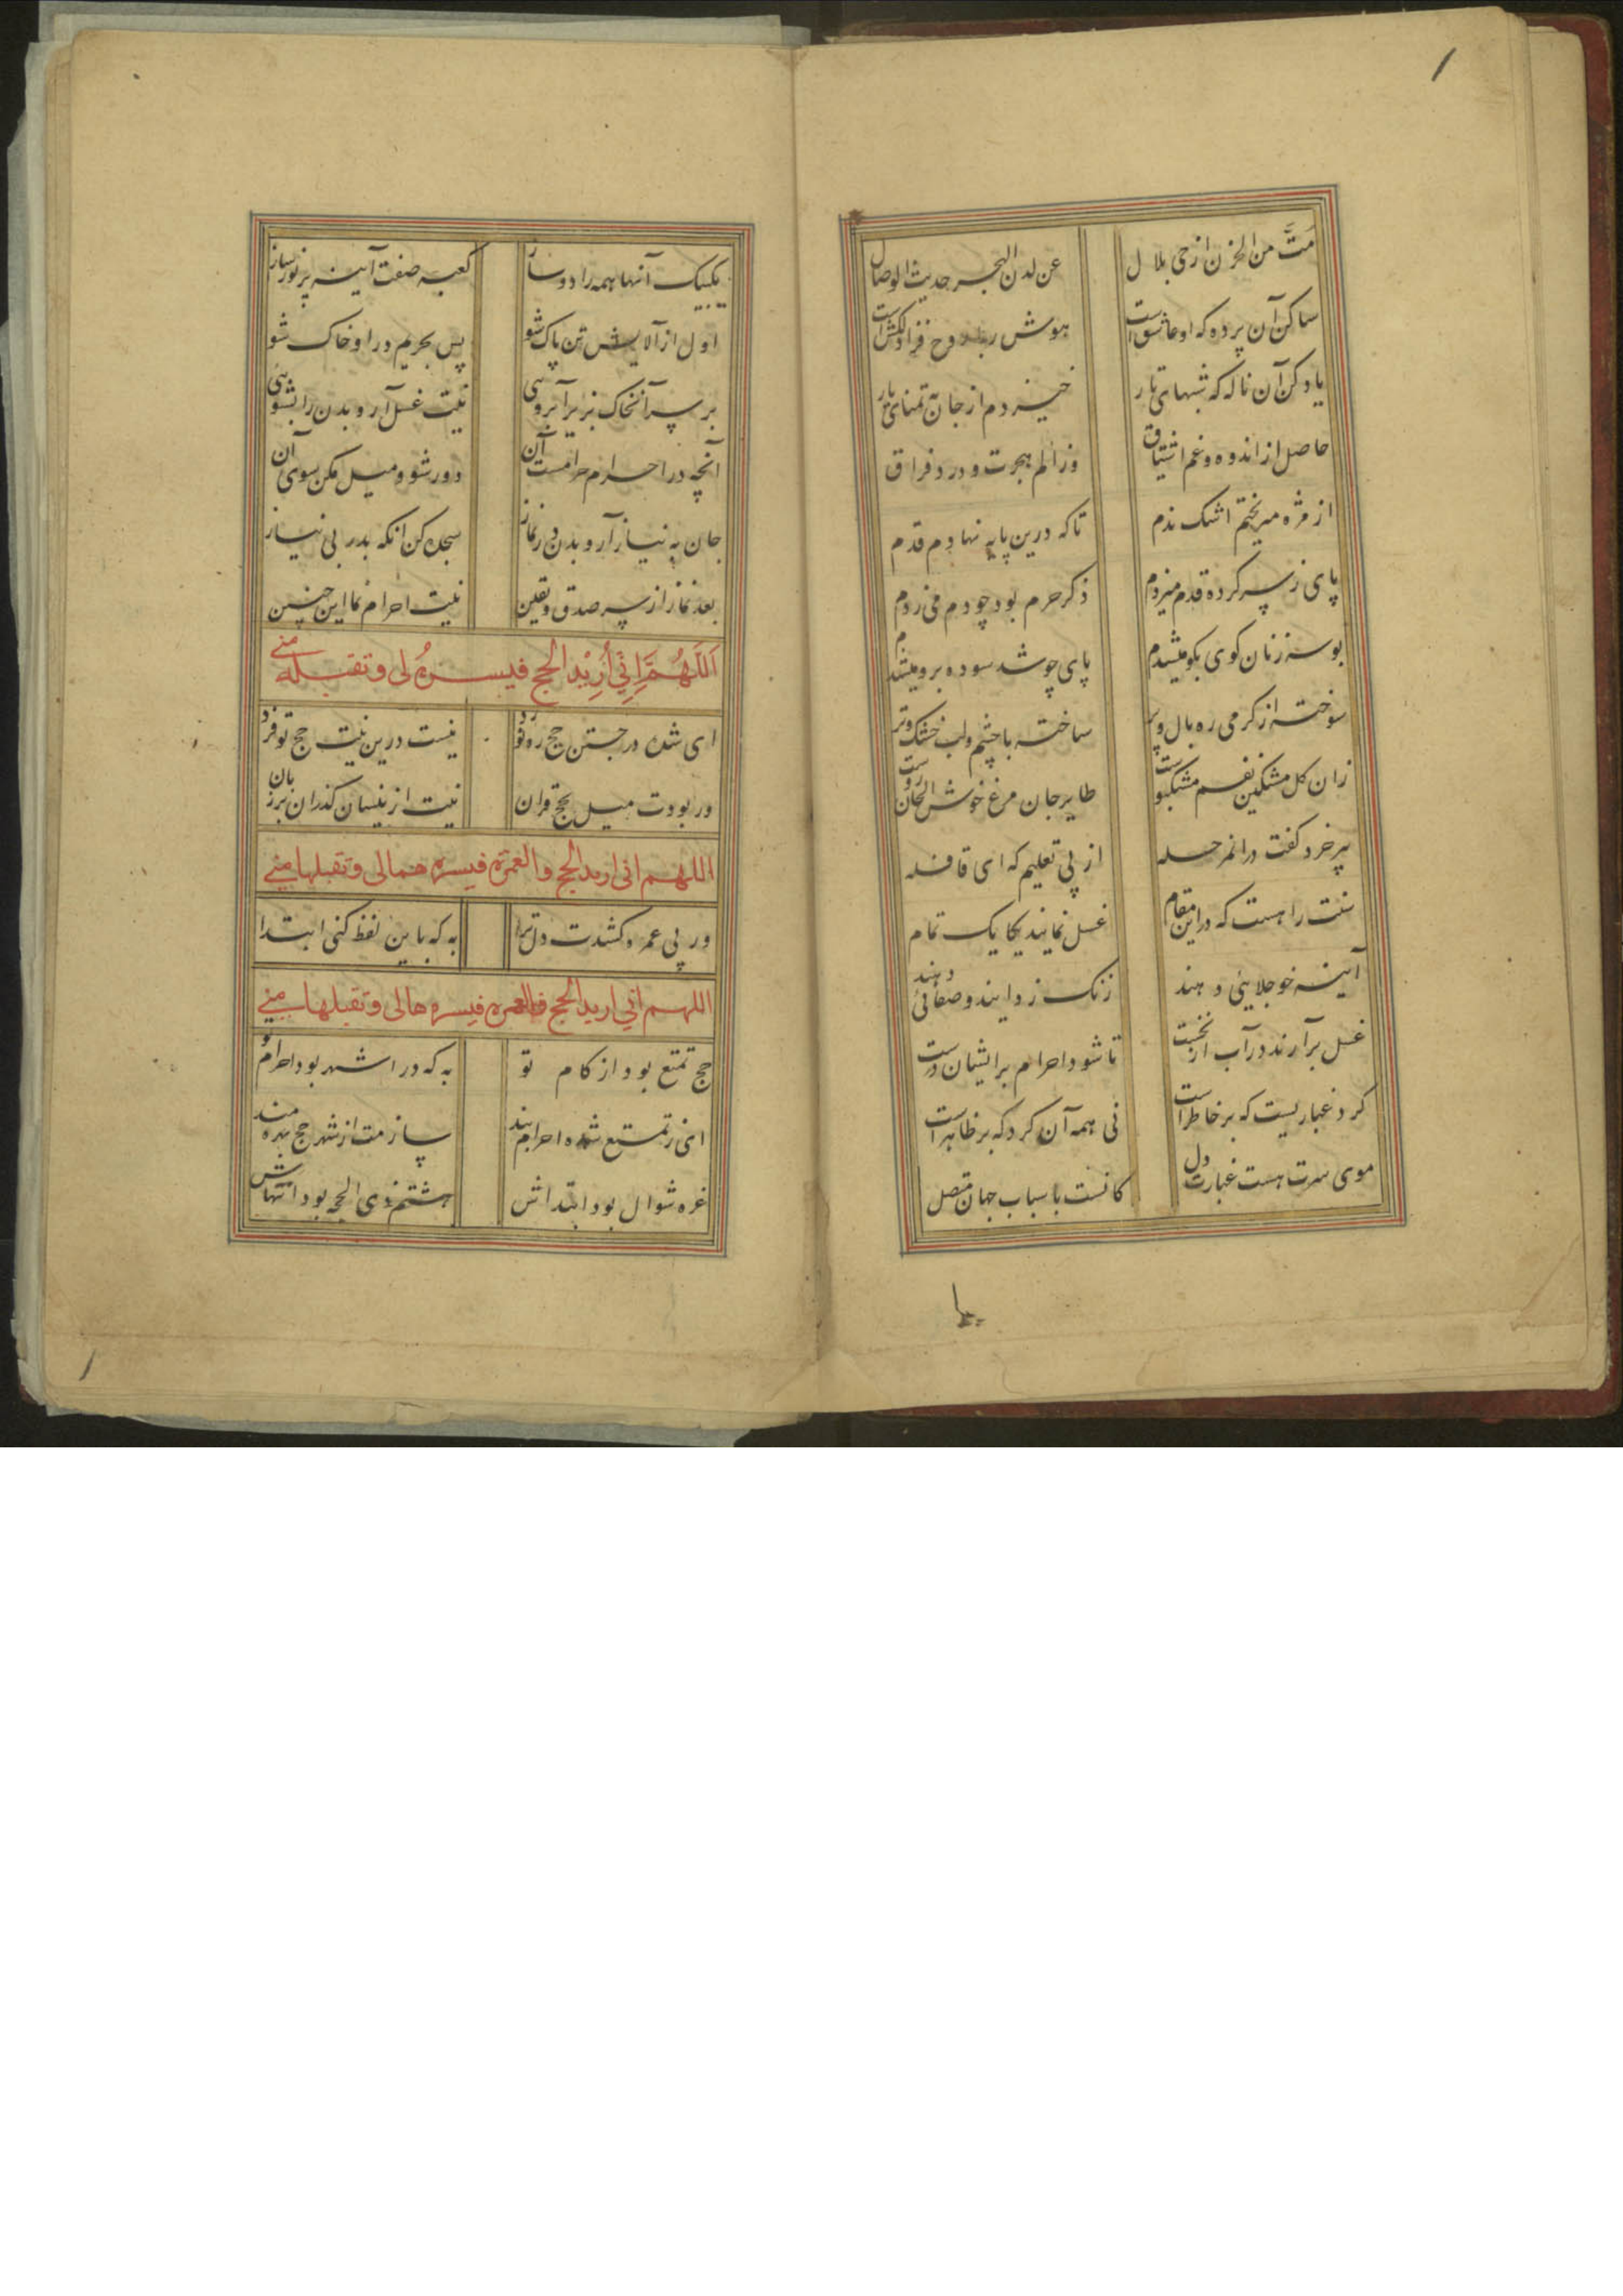 مت من الحزن ارحنی بلال
عن لدن البحر حدیث الوصال
ساکن آن پرده که او عاشق است
هوش ربا روح فزا دلکش است
یاد کن آن ناله که شبهای تار
خیزدم از جان به تمنای یار
حاصل از اندوه و غم اشتیاق
وز الم هجرت و درد فراق
از مژه میریختم اشک ندم
تا که درین پایه نهادم قدم
پای ز سر کرده قدم میزدم
ذکر حرم بود چو دم می زدم
بوسه زنان کوی بکو میشدم
پای چو شد سوده برو میشدم
سوخته از کرمی ره بال و پر
ساخته با چشم و لب خشک و تر
زان کل مشکین نفسم مشکبوست
طایر جان مرغ خوش الحان اوست
پیر خرد کفت در انمرحله
از پی تعلیم که ای قافله
سنت راهست که در این مقام
غسل نمایند یکایک تمام
آینه خو جلایئی دهند
زنک زدایند و صفائی دهند
غسل برآرند در آب از نخست
تا شود احرام بر ایشان درست
کرد غباریست که بر خاطر است
نی همه آن کرد که بر ظاهر است
موی سرت هست غبارت دل
کانست باسباب جهان متصل
یکبیک آنها همه را دور ساز
کعبه صفت آینه پر نور ساز
اول از آلایش تن پاک شو
پس بحریم در او خاک شو
بر سر آنخاک بریز آبروی
نیت غسل آر و بدن را بشوی
آنچه در احرام حرامست آن
دور شو و میل مکن سوی آن
جان به نیاز آر و بدن در نماز
سجده کن انکه بدر بی نیاز
بعد نماز از سر صدق و یقین
نیت احرام نما این چنین
اَللَّهُمَّ اِنّی أُرِیْدُ الحج فیسرهُ لی و تقبله منی
ای شده در جستن حج ره نورد
نیست درین نیت حج تو فرد
ور بودت میل بحج قران
نیت ازینسان کذران بر زبان
اللهم انی ارید الحج والعمرة فیسرهمالی و تقبلها منی
ور پی عمره کشدت دل ترا
به که باین لفظ کنی ابتدا
اللهم انی ارید الحج فالعمره فیسره هالی و تقبلها منی
حج تمتع بود از کام تو
به که در اشهر بود احرام تو
ای ز تمتع شده احرام بند
سازمت از شهر حج بهره مند
غره شوال بود ابتداش
هشتم ذی الحجه بود انتهاش